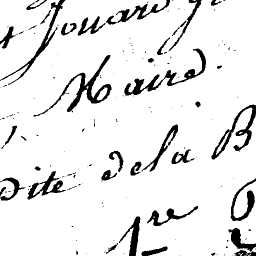 Jouard
Maire.
dite dela B
1re